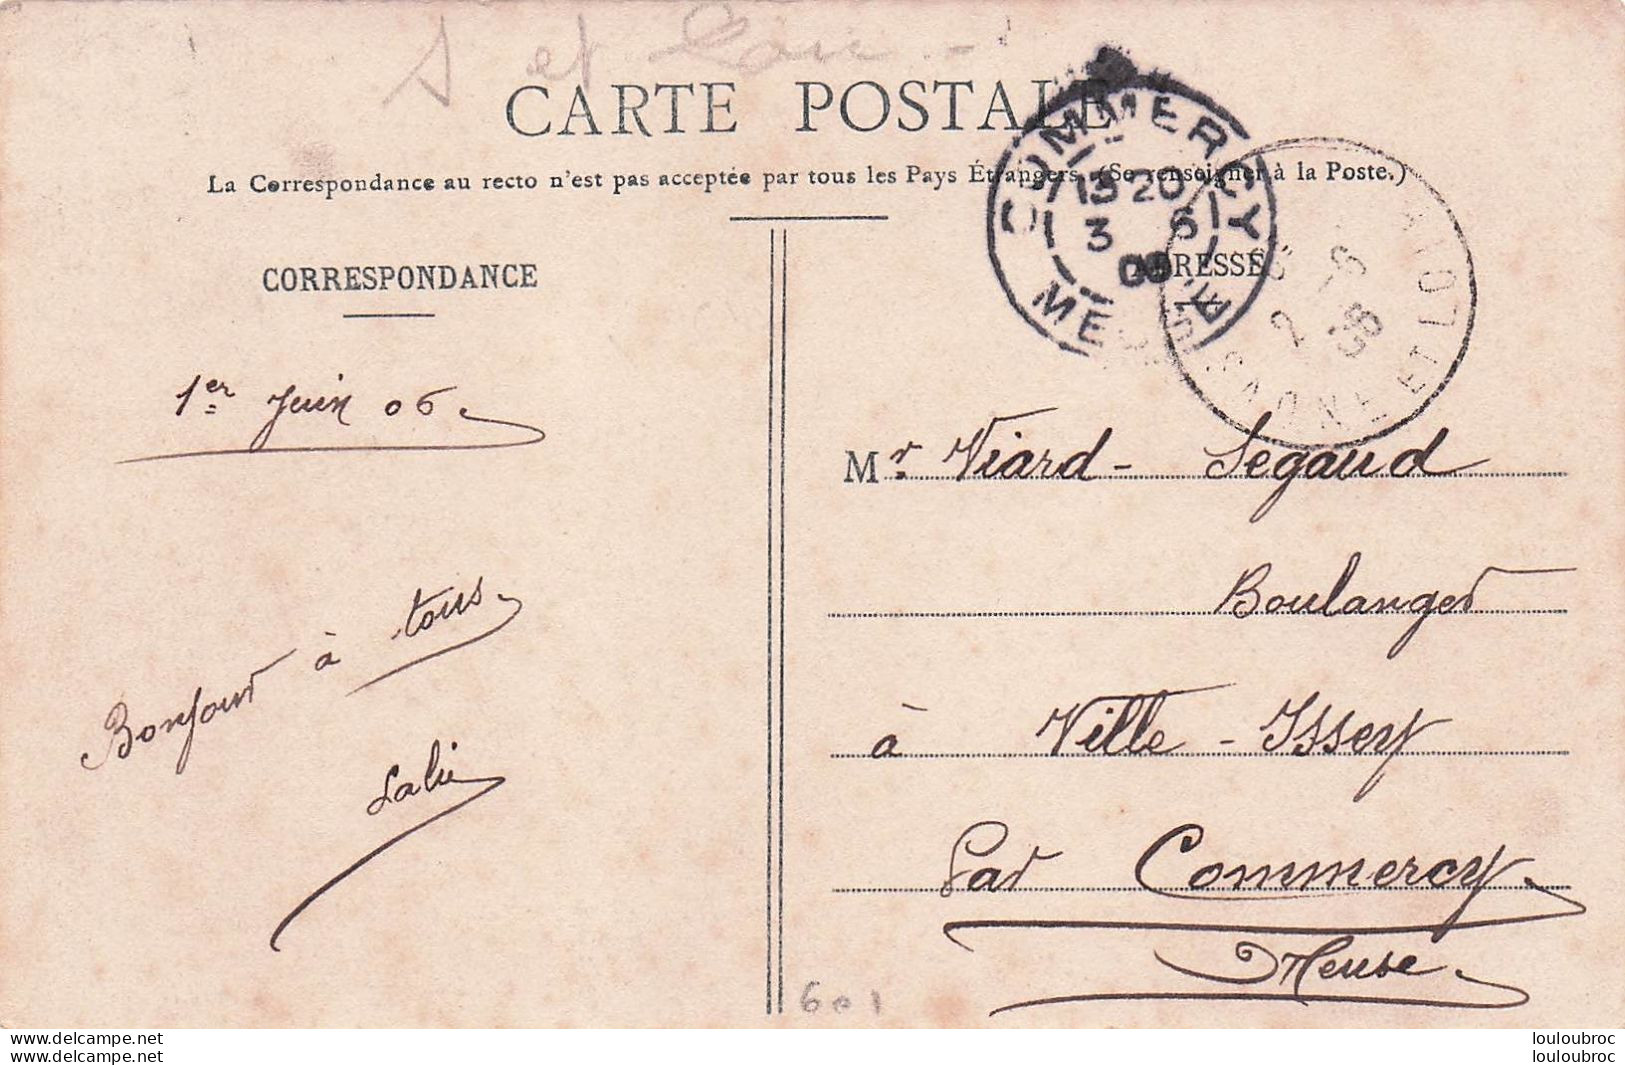 S et Loire
CARTE POSTALE
La Correspondance au recto n'est pas acceptée par tous les Pays Étrangers. (Se renseigner à la Poste.)
COMMERCY
13 20
3 6
06
MEUSE
2 -6
06
SAONE ET LOIRE
CORRESPONDANCE
ADRESSE
1er Juin 06.
Mr Viard - Segaud
Boulanger
à Ville - Issey
Par Commercy.
Meuse.
Bonjour à tous
601
louloubroc
louloubroc